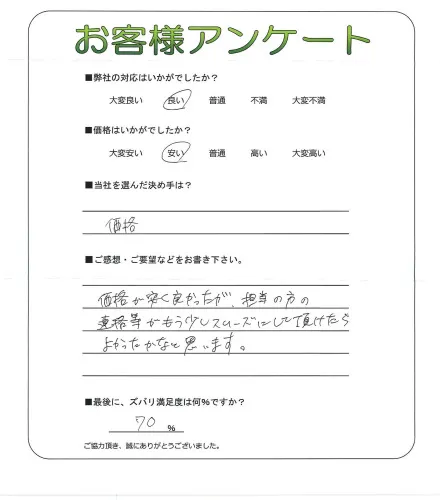 お客様アンケート
■弊社の対応はいかがでしたか？
大変良い 良い 普通 不満 大変不満
■価格はいかがでしたか？
大変安い 安い 普通 高い 大変高い
■当社を選んだ決め手は？
価格
■ご感想・ご要望などをお書き下さい。
価格が安く良かったが、担当の方の
連絡等がもう少しスムーズにして頂けたら
よかったかなと思います。
■最後に、ズバリ満足度は何%ですか？
70 %
ご協力頂き、誠にありがとうございました。